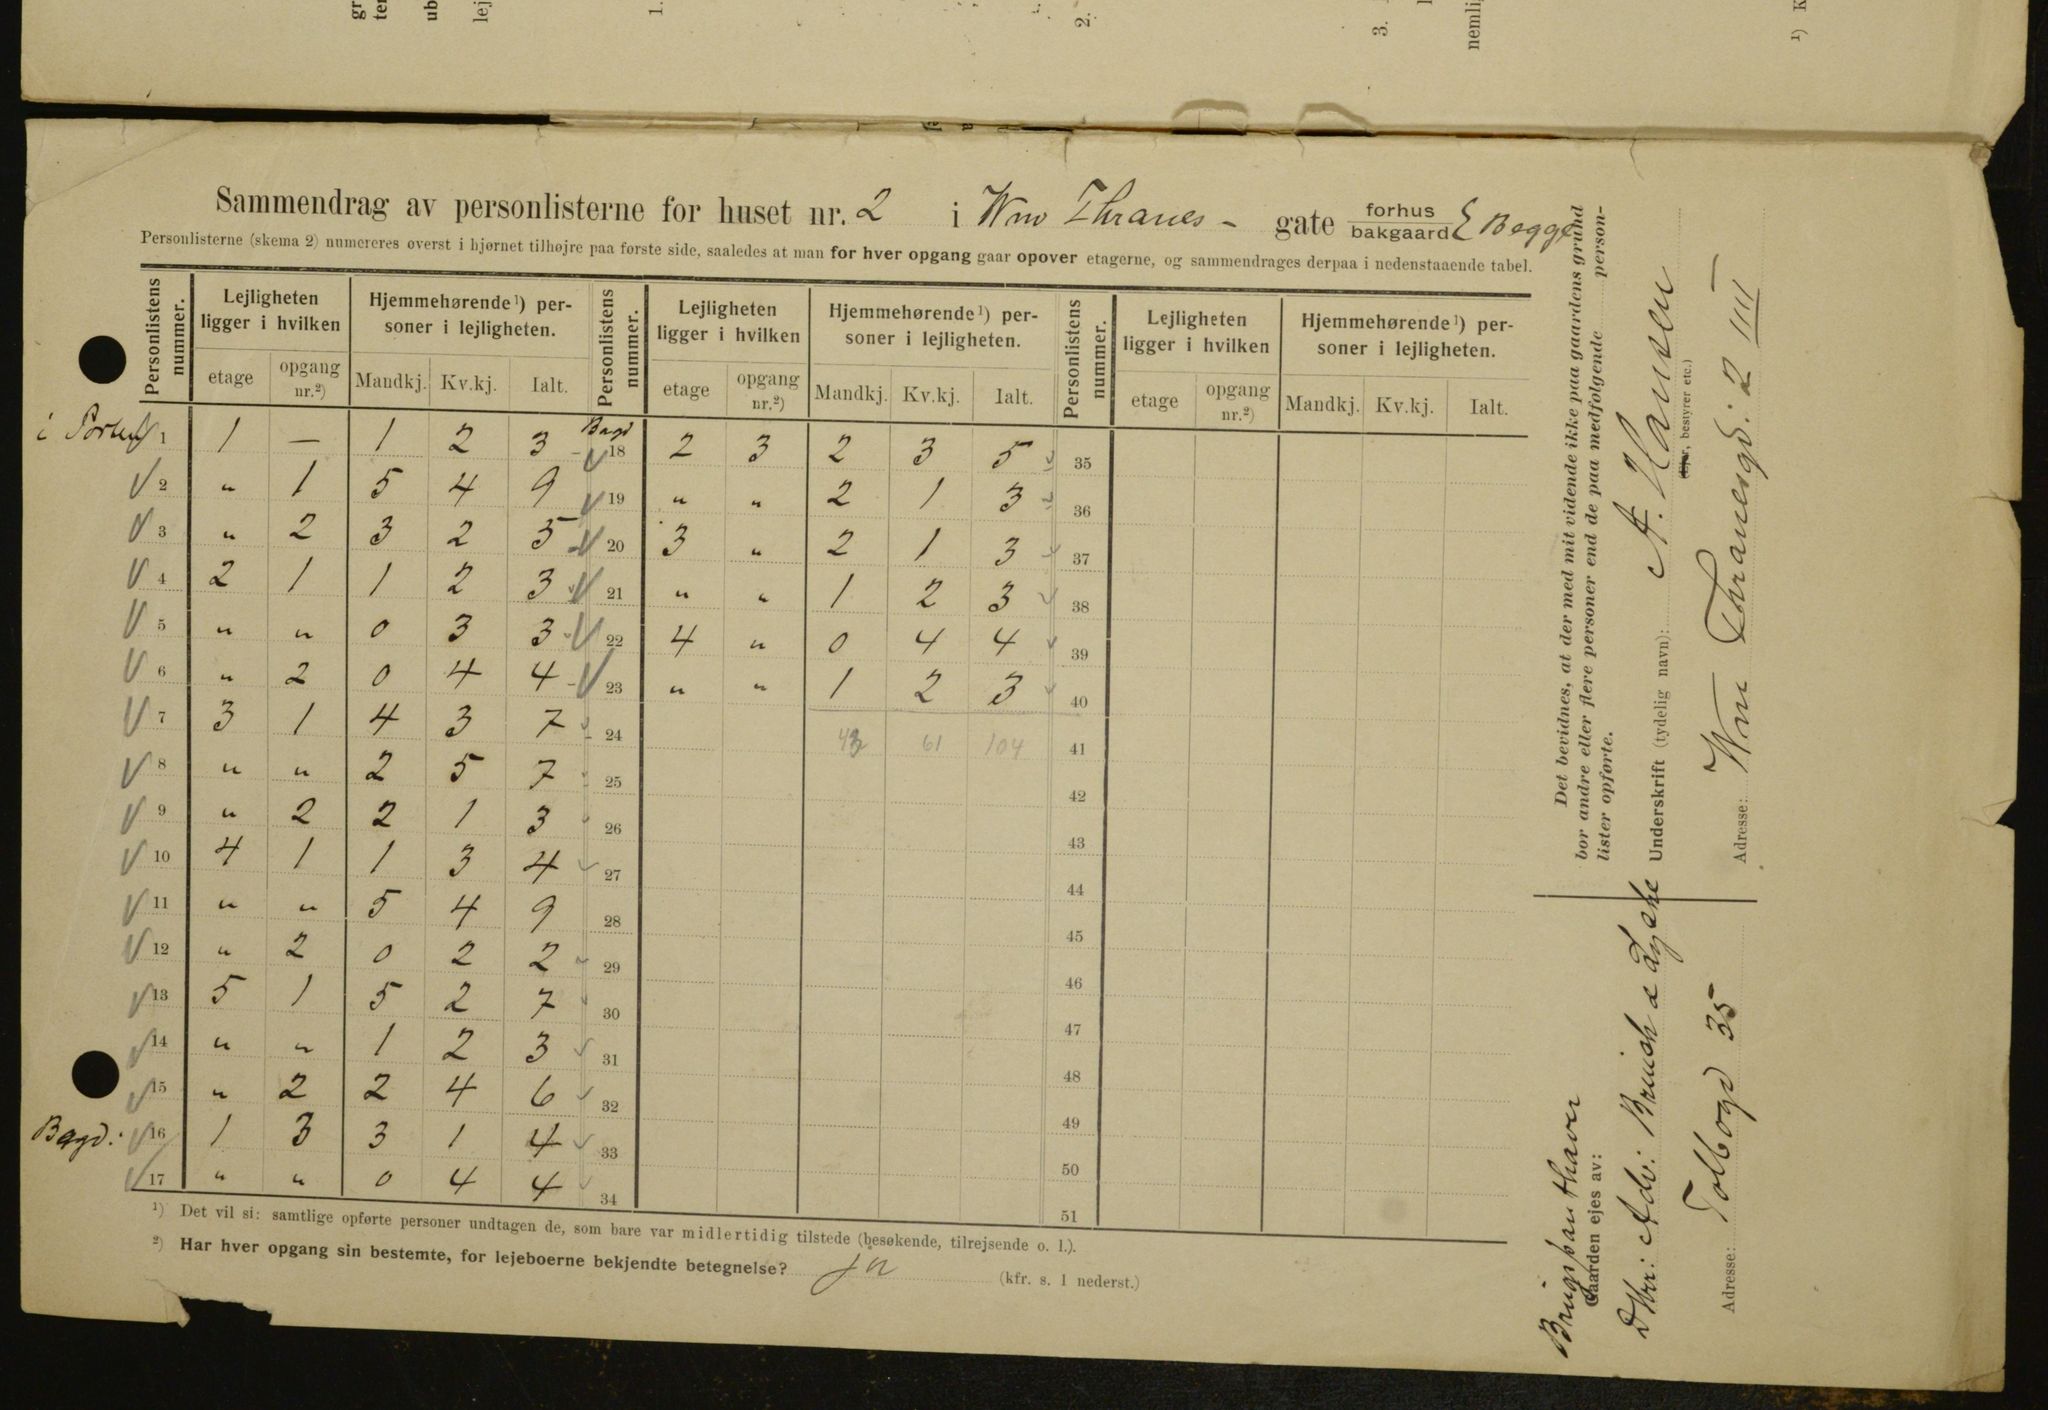 Sammendrag av personlisterne for huset nr. 2 i Wm Thranes- gate forhus bakgaard } Begge
Personlisterne (skema 2) numereres øverst i hjørnet tilhøjre paa første side, saaledes at man for hver opgang gaar opover etagerne, og sammendrages derpaa i nedenstaaende tabel.
Personlistens nummer. Lejligheten ligger i hvilken Hjemmehørende¹) personer i lejligheten. Personlistens nummer. Lejligheten ligger i hvilken Hjemmehørende¹) personer i lejligheten. Personlistens nummer. Lejligheten ligger i hvilken Hjemmehørende¹) personer i lejligheten.
etage opgang nr.²) Mandkj. Kv.kj. Ialt. etage opgang nr.²) Mandkj. Kv.kj. Ialt. etage opgang nr.²) Mandkj. Kv.kj. Ialt.
i Porten 1 1 — 1 2 3 Bagd 18 2 3 2 3 5 35
2 " 1 5 4 9 19 " " 2 1 3 36
3 " 2 3 2 5 20 3 " 2 1 3 37
4 2 1 1 2 3 21 " " 1 2 3 38
5 " " 0 3 3 22 4 " 0 4 4 39
6 " 2 0 4 4 23 " " 1 2 3 40
7 3 1 4 3 7 24 43 61 104 41
8 " " 2 5 7 25 42
9 " 2 2 1 3 26 43
10 4 1 1 3 4 27 44
11 " " 5 4 9 28 45
12 " 2 0 2 2 29 46
13 5 1 5 2 7 30 47
14 " " 1 2 3 31 48
15 " 2 2 4 6 32 49
Bagd: 16 1 3 3 1 4 33 50
17 " " 0 4 4 34 51
¹) Det vil si: samtlige opførte personer undtagen de, som bare var midlertidig tilstede (besøkende, tilrejsende o. l.).
²) Har hver opgang sin bestemte, for lejeboerne bekjendte betegnelse? ja (kfr. s. 1 nederst.)
Det bevidnes, at der med mit vidende ikke paa gaardens grund
bor andre eller flere personer end de paa medfølgende personlister opførte.
Underskrift (tydelig navn): A. Hansen
(Ejer, bestyrer etc.)
Adresse: Wm Thranesgd: 2 IIII
Gaarden ejes av:
Adresse: Tolbogd 35